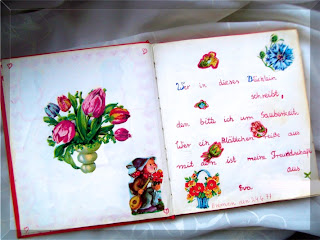 Wer in dieses Büchlein
schreibt,
den bitte ich um Sauberkeit
Wer ein Blättchen reißt aus
mit dem ist meine Freundschaft
aus
Eva